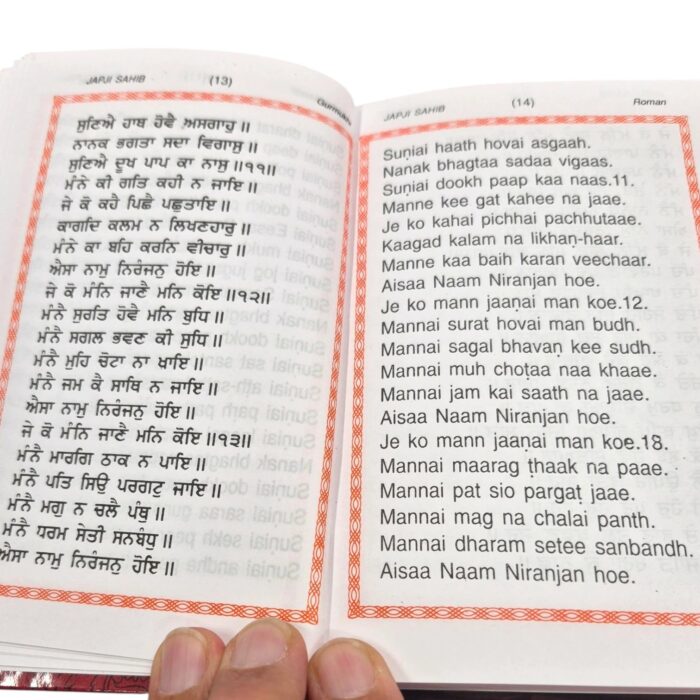 JAPJI SAHIB (13)
ਸੁਣਿਐ ਹਾਥ ਹੋਵੈ ਅਸਗਾਹੁ॥
ਨਾਨਕ ਭਗਤਾ ਸਦਾ ਵਿਗਾਸੁ॥
ਸੁਣਿਐ ਦੂਖ ਪਾਪ ਕਾ ਨਾਸੁ॥੧੧॥
ਮੰਨੇ ਕੀ ਗਤਿ ਕਹੀ ਨ ਜਾਇ॥
ਜੇ ਕੋ ਕਹੈ ਪਿਛੈ ਪਛੁਤਾਇ॥
ਕਾਗਦਿ ਕਲਮ ਨ ਲਿਖਣਹਾਰੁ॥
ਮੰਨੇ ਕਾ ਬਹਿ ਕਰਨਿ ਵੀਚਾਰੁ॥
ਐਸਾ ਨਾਮੁ ਨਿਰੰਜਨੁ ਹੋਇ॥
ਜੇ ਕੋ ਮੰਨਿ ਜਾਣੈ ਮਨਿ ਕੋਇ॥੧੨॥
ਮੰਨੈ ਸੁਰਤਿ ਹੋਵੈ ਮਨਿ ਬੁਧਿ॥
ਮੰਨੈ ਸਗਲ ਭਵਣ ਕੀ ਸੁਧਿ॥
ਮੰਨੈ ਮੁਹਿ ਚੋਟਾ ਨਾ ਖਾਇ॥
ਮੰਨੈ ਜਮ ਕੈ ਸਾਥਿ ਨ ਜਾਇ॥
ਐਸਾ ਨਾਮੁ ਨਿਰੰਜਨੁ ਹੋਇ॥
ਜੇ ਕੋ ਮੰਨਿ ਜਾਣੈ ਮਨਿ ਕੋਇ॥੧੩॥
ਮੰਨੈ ਮਾਰਗਿ ਠਾਕ ਨ ਪਾਇ॥
ਮੰਨੈ ਪਤਿ ਸਿਉ ਪਰਗਟੁ ਜਾਇ॥
ਮੰਨੈ ਮਗੁ ਨ ਚਲੈ ਪੰਥੁ॥
ਮੰਨੈ ਧਰਮ ਸੇਤੀ ਸਨਬੰਧੁ॥
ਐਸਾ ਨਾਮੁ ਨਿਰੰਜਨੁ ਹੋਇ॥
JAPJI SAHIB (14) Roman
Suṇiai haath hovai asgaah.
Nanak bhagtaa sadaa vigaas.
Suṇiai dookh paap kaa naas.11.
Manne kee gat kahee na jaae.
Je ko kahai pichhai pachhutaae.
Kaagad kalam na likhaṇ-haar.
Manne kaa baih karan veechaar.
Aisaa Naam Niranjan hoe.
Je ko mann jaaṇai man koe.12.
Mannai surat hovai man budh.
Mannai sagal bhavaṇ kee sudh.
Mannai muh choṭaa naa khaae.
Mannai jam kai saath na jaae.
Aisaa Naam Niranjan hoe.
Je ko mann jaaṇai man koe.13.
Mannai maarag ṭhaak na paae.
Mannai pat sio pargaṭ jaae.
Mannai mag na chalai panth.
Mannai dharam setee sanbandh.
Aisaa Naam Niranjan hoe.